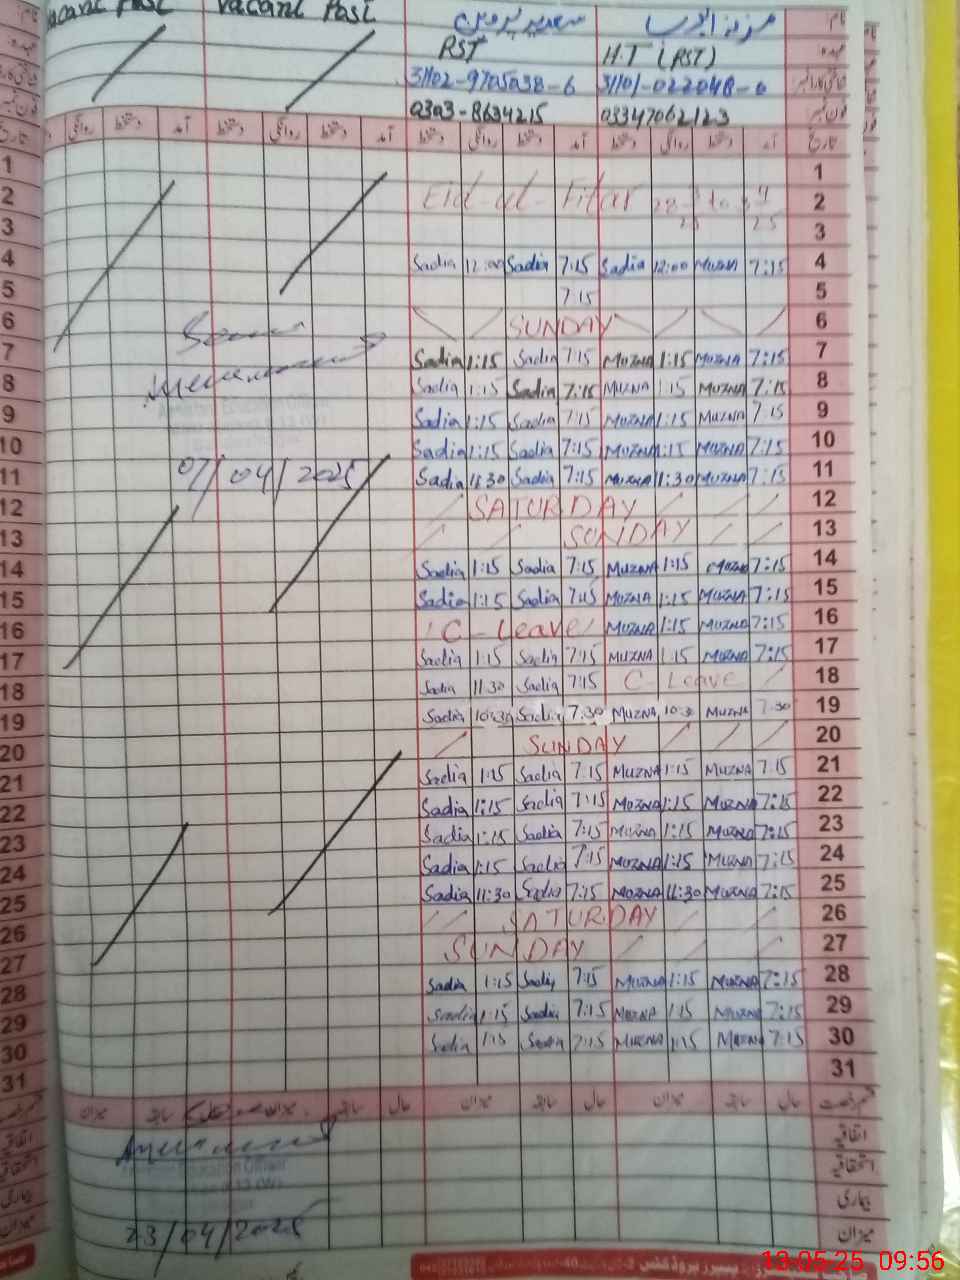 Vacant Post Vacant Post سعدیہ پروین نام
RST H.T (RST) عہدہ
31102-9705038-6 31101-022048-0
0303-8634215 03347062123
دستخط روانگی دستخط آمد دستخط روانگی دستخط آمد دستخط روانگی دستخط آمد تاریخ
1 1
2 Eid-ul-Fitar 2
3 3
4 Sadia 12:00 Sadia 7:15 Sadia 12:00 MUZNA 7:15 4
5 7:15 5
6 SUNDAY 6
7 Sadia 1:15 Sadia 7:15 MUZNA 1:15 MUZNA 7:15 7
8 Sadia 1:15 Sadia 7:15 MUZNA 1:15 MUZNA 7:15 8
9 Sadia 1:15 Sadia 7:15 MUZNA 1:15 MUZNA 7:15 9
10 Sadia 1:15 Sadia 7:15 MUZNA 1:15 MUZNA 7:15 10
11 07/04/2025 Sadia 11:30 Sadia 7:15 MUZNA 11:30 MUZNA 7:15 11
12 SATURDAY 12
13 SUNDAY 13
14 Sadia 1:15 Sadia 7:15 MUZNA 1:15 MUZNA 7:15 14
15 Sadia 1:15 Sadia 7:15 MUZNA 1:15 MUZNA 7:15 15
16 C-Leave MUZNA 1:15 MUZNA 7:15 16
17 Sadia 1:15 Sadia 7:15 MUZNA 1:15 MUZNA 7:15 17
18 Sadia 11:30 Sadia 7:15 C-Leave 18
19 Sadia 10:30 Sadia 7:30 MUZNA 10:30 MUZNA 7:30 19
20 SUNDAY 20
21 Sadia 1:15 Sadia 7:15 MUZNA 1:15 MUZNA 7:15 21
22 Sadia 1:15 Sadia 7:15 MUZNA 1:15 MUZNA 7:15 22
23 Sadia 1:15 Sadia 7:15 MUZNA 1:15 MUZNA 7:15 23
24 Sadia 1:15 Sadia 7:15 MUZNA 1:15 MUZNA 7:15 24
25 Sadia 11:30 Sadia 7:15 MUZNA 11:30 MUZNA 7:15 25
26 SATURDAY 26
27 SUNDAY 27
28 Sadia 1:15 Sadia 7:15 MUZNA 1:15 MUZNA 7:15 28
29 Sadia 1:15 Sadia 7:15 MUZNA 1:15 MUZNA 7:15 29
30 Sadia 1:15 Sadia 7:15 MUZNA 1:15 MUZNA 7:15 30
31 31
میزان سابقہ حال میزان سابقہ حال
اتفاقیہ
استحقاقیہ
Education Officer
بیماری
23/04/2025 میزان
13-05-25 09:56